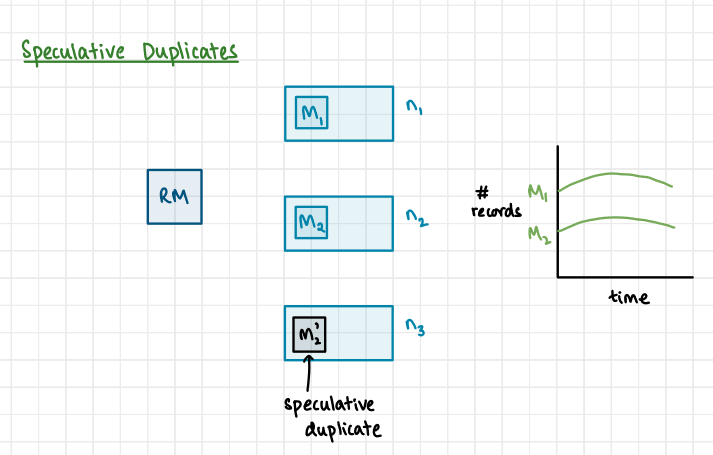 Speculative Duplicates
M₁ n₁
RM
M₂ n₂
M₂' n₃
speculative
duplicate
#
records
M₁
M₂
time